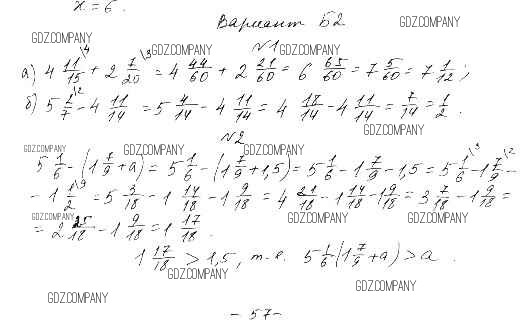 x = 6.
Вариант Б2
GDZ.COMPANY
GDZ.COMPANY
№1
GDZ.COMPANY
GDZ.COMPANY
а) 4 11/15 \4 + 2 7/20 \3 = 4 44/60 + 2 21/60 = 6 65/60 = 7 5/60 = 7 1/12;
б) 5 2/7 \2 - 4 11/14 = 5 4/14 - 4 11/14 = 4 18/14 - 4 11/14 = 7/14 = 1/2.
GDZ.COMPANY
№2
GDZ.COMPANY
GDZ.COMPANY
GDZ.COMPANY
5 1/6 - (1 7/9 + a) = 5 1/6 - (1 7/9 + 1,5) = 5 1/6 - 1 7/9 - 1,5 = 5 1/6 \3 - 1 7/9 \2 -
- 1 1/2 \9 = 5 3/18 - 1 14/18 - 1 9/18 = 4 21/18 - 1 14/18 - 1 9/18 = 3 7/18 - 1 9/18 =
GDZ.COMPANY
GDZ.COMPANY
GDZ.COMPANY
= 2 25/18 - 1 9/18 = 1 17/18.
1 17/18 > 1,5, т-е. 5 1/6 (1 7/9 + a) > a.
GDZ.COMPANY
GDZ.COMPANY
GDZ.COMPANY
- 57 -